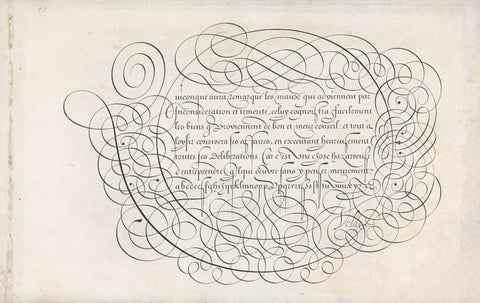 uiconque aura remarqué les maux qui adviennent par
Inconsideration et temerité, celuy cognoistra facilement
les biens q proviennent de bon et meur conseil, et tout a
loysir considera les affaires, en executant heureusement
toutes ses Deliberations. Car c'est une chose hazardeuse
d'entreprendre Qlque oeuvre sans y penser meurement.
a b c d e e f g h i j k l m n o p p